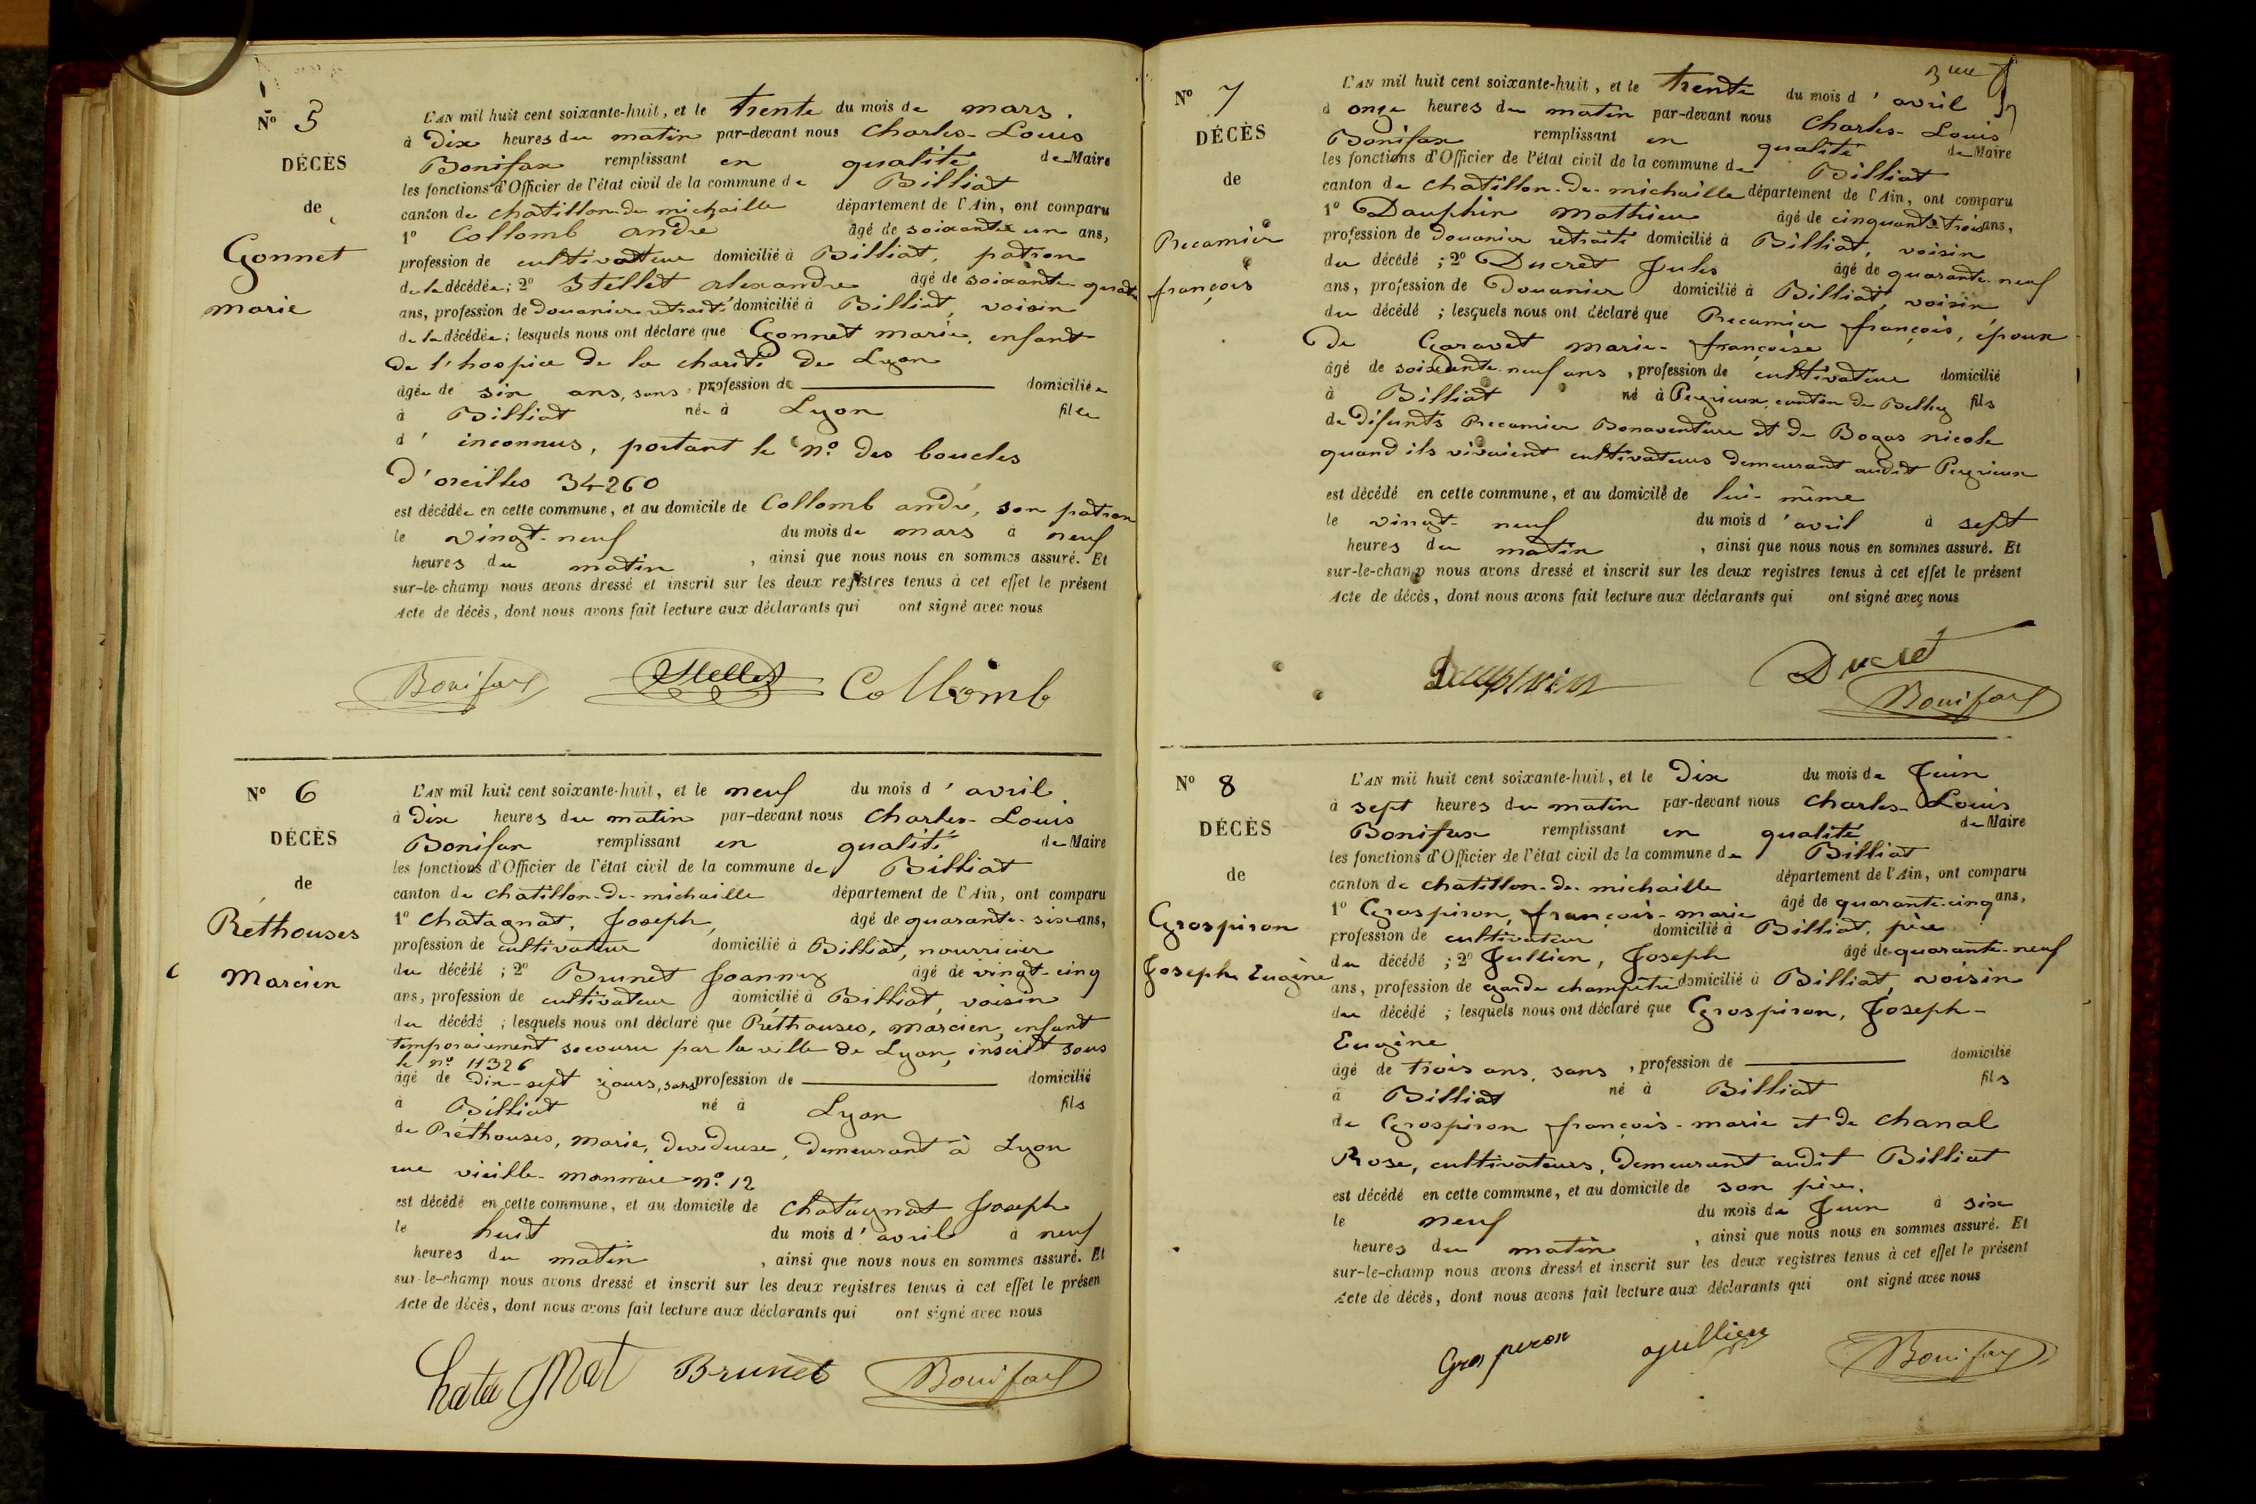 Nº 5
DÉCÈS
de
Gonnet
marie
L'AN mil huit cent soixante-huit, et le trente du mois de mars
à Dix heures du matin par-devant nous Charles-Louis
Bonifax remplissant en qualité de Maire
les fonctions d'Officier de l'état civil de la commune de Billiat
canton de chatillon-de-michaille département de l'Ain, ont comparu
1º Collomb andré âgé de soixante un ans,
profession de cultivateur domicilié à Billiat, patron
de la décédée; 2º Stellet alexandre âgé de soixante quatre
ans, profession de douanier retraité domicilié à Billiat, voisin
de la décédée; lesquels nous ont déclaré que Gonnet marie, enfant
de l'hospice de la charité de Lyon
âgée de six ans, sans profession de domiciliée
à Billiat née à Lyon fille
d'inconnus, portant le nº des boucles
d'oreilles 34260
est décédée en cette commune, et au domicile de Collomb andré, son patron
le vingt-neuf du mois de mars à neuf
heures du matin, ainsi que nous nous en sommes assuré. Et
sur-le-champ nous avons dressé et inscrit sur les deux registres tenus à cet effet le présent
Acte de décès, dont nous avons fait lecture aux déclarants qui ont signé avec nous
Bonifax Stellet Collomb
Nº 6
DÉCÈS
de
Réthouses
Marcien
L'AN mil huit cent soixante-huit, et le neuf du mois d'avril
à Dix heures du matin par-devant nous Charles-Louis
Bonifax remplissant en qualité de Maire
les fonctions d'Officier de l'état civil de la commune de Billiat
canton de chatillon-de-michaille département de l'Ain, ont comparu
1º Chatagnat, Joseph, âgé de quarante-six ans,
profession de cultivateur domicilié à Billiat, nourricier
du décédé; 2º Brunet Joanny âgé de vingt-cinq
ans, profession de cultivateur domicilié à Billiat, voisin
du décédé; lesquels nous ont déclaré que Réthouses, marcien, enfant
temporairement secouru par la ville de Lyon, inscrit sous
le nº 11326
âgé de dix-sept jours, sans profession de domicilié
à Billiat né à Lyon fils
de Réthouses, marie, devideuse, demeurant à Lyon
rue vieille-monnaie nº 12
est décédé en cette commune, et au domicile de Chatagnat Joseph
le huit du mois d'avril à neuf
heures du matin, ainsi que nous nous en sommes assuré. Et
sur-le-champ nous avons dressé et inscrit sur les deux registres tenus à cet effet le présen
Acte de décès, dont nous avons fait lecture aux déclarants qui ont signé avec nous
Chatagnat Brunet Bonifax
Nº 7
DÉCÈS
de
Recamier
françois
L'AN mil huit cent soixante-huit, et le trente du mois d'avril
à onze heures du matin par-devant nous Charles-Louis
Bonifax remplissant en qualité de Maire
les fonctions d'Officier de l'état civil de la commune de Billiat
canton de chatillon-de-michaille département de l'Ain, ont comparu
1º Dauphin mathieu âgé de cinquante trois ans,
profession de douanier retraité domicilié à Billiat, voisin
du décédé; 2º Ducret Jules âgé de quarante-neuf
ans, profession de Douanier domicilié à Billiat, voisin
du décédé; lesquels nous ont déclaré que Recamier françois, époux
de Garavet marie-françoise
âgé de soixante-neuf ans, profession de cultivateur domicilié
à Billiat né à Peyrieux, canton de Belley fils
de défunts Recamier Bonaventure et de Bogas nicole
quand ils vivaient cultivateurs demeurant audit Peyrieux
est décédé en cette commune, et au domicile de lui-même
le vingt-neuf du mois d'avril à sept
heures du matin, ainsi que nous nous en sommes assuré. Et
sur-le-champ nous avons dressé et inscrit sur les deux registres tenus à cet effet le présent
Acte de décès, dont nous avons fait lecture aux déclarants qui ont signé avec nous
Dauphin Ducret
Bonifax
Nº 8
DÉCÈS
de
Grospiron
Joseph Eugène
L'AN mil huit cent soixante-huit, et le Dix du mois de Juin
à sept heures du matin par-devant nous Charles-Louis
Bonifax remplissant en qualité de Maire
les fonctions d'Officier de l'état civil de la commune de Billiat
canton de chatillon-de-michaille département de l'Ain, ont comparu
1º Grospiron, françois-marie âgé de quarante-cinq ans,
profession de cultivateur domicilié à Billiat, père
du décédé; 2º Jullien, Joseph âgé de quarante-neuf
ans, profession de garde champêtre domicilié à Billiat, voisin
du décédé; lesquels nous ont déclaré que Grospiron, Joseph-
Eugène
âgé de trois ans, sans, profession de domicilié
à Billiat né à Billiat fils
de Grospiron françois-marie et de Chanal
Rose, cultivateurs, demeurant audit Billiat
est décédé en cette commune, et au domicile de son père,
le neuf du mois de Juin à six
heures du matin, ainsi que nous nous en sommes assuré. Et
sur-le-champ nous avons dressé et inscrit sur les deux registres tenus à cet effet le présent
Acte de décès, dont nous avons fait lecture aux déclarants qui ont signé avec nous
Grospiron Jullien Bonifax